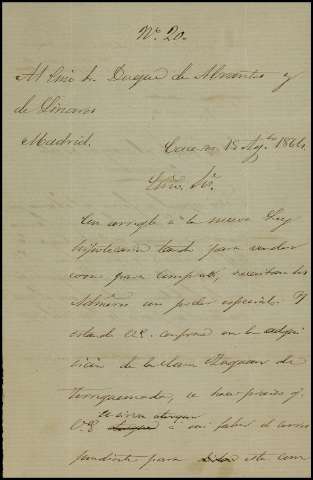 Nº 20.
Al Exmo Sr. Duque de Abrantes y
de Linares
Madrid.
Caceres 15 Agto 1864.
Exmo. Sor.
Con arreglo á la nueva Ley
hipotecaria tanto para vender
como para comprar, necesitan los
Admores un poder especial. Y
estando V.E. conforme en la adqui
sicion de la
Torrequemada, se hace preciso q.
se sirva otorgar
V.E. á mi favor el corres
pondiente para esta com